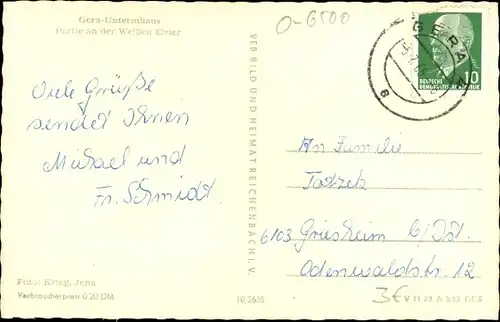 Gera-Untermhaus
Partie an der Weißen Elster
O-6500
GERA
10
DEUTSCHE
DEMOKRATISCHE REPUBLIK
VEB BILD UND HEIMAT REICHENBACH I. V.
Viele Grüße
sendet Ihnen
Michael und
Fr. Schmidt.
An Familie
6103 Griesheim b/Dst.
Odenwaldstr. 12
Foto: Krieg, Jena
Verbraucherpreis 0,20 DM
10,2635
3€ V 11 28 A 3/63 DDR